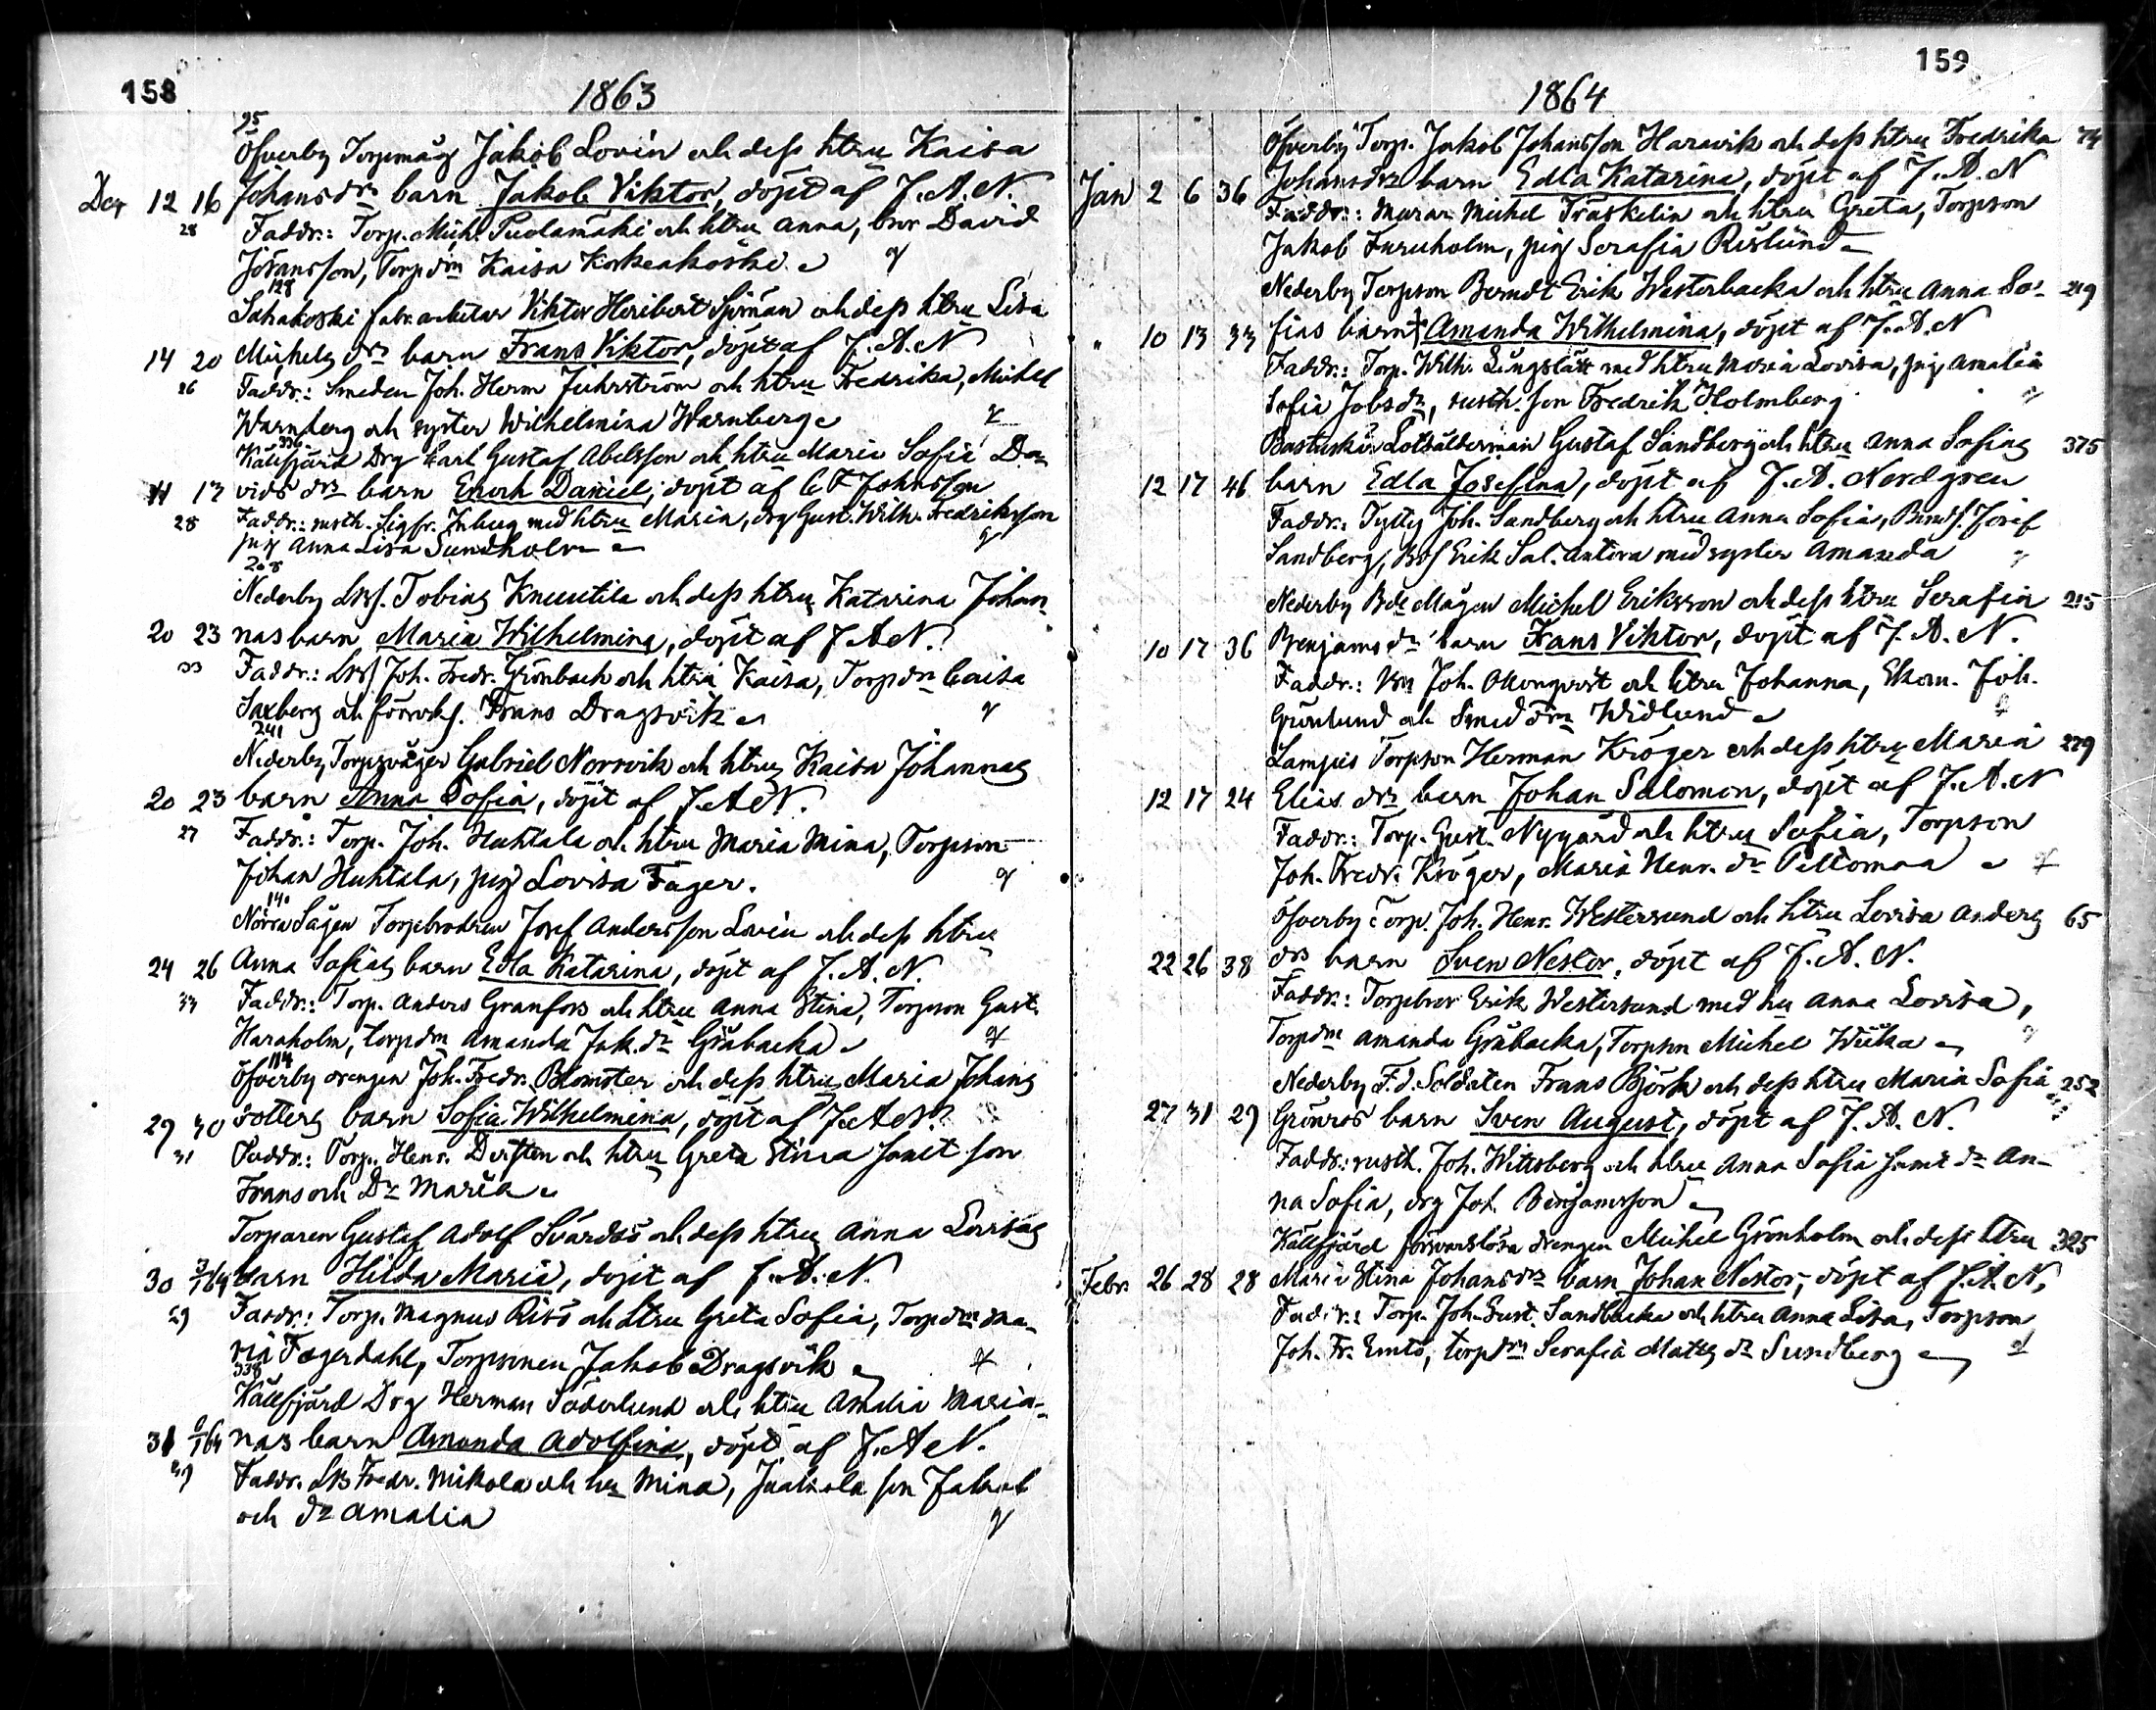 158
1863
95
Öfverby Torpmåg Jakob Lovin och dess htru Kaisa
Dec 12 16 Johansdr barn Jakob Viktor, döpt af J. A. N.
28 Faddr.: Torp. Mich. Puolamäki och htru Anna, bror David
Johansson, Torpdrn Kaisa Korkeakoski
128
Sahakoski fabr. arbetar Viktor Heribert Sjöman och dess htru Lisa
14 20 Michels drs barn Frans Viktor, döpt af J. A. N
26 Faddr.: Smeden Joh. Herm Fuhrström och htru Fredrika, Michel
Warnberg och syster Wilhelmina Warnberg
336
Källfjärd Drg Karl Gustaf Abelsson och htru Maria Sofia Da-
11 17 vids drs barn Enoch Daniel, döpt af C. F. Johnsson
28 Faddr.: rusth. Sigfr. Inberg med htru Maria, drg Gust. Wilh. Fredriksson
pig Anna Lisa Sundholm
208
Nederby Lbs. Tobias Knuutila och dess htru Katarina Johan-
20 23 nas barn Maria Wilhelmina, döpt af J A N.
33 Faddr.: Lbs Joh. Fredr. Grönback och htru Kaisa, Torpdrn Caisa
Saxberg och Frans Dragsvik
241
Nederby Torpsvåger Gabriel Norrvik och htru Kaisa Johannas
20 23 barn Anna Sofia, döpt af J A N.
27 Faddr.: Torp. Joh. Huhtala och htru Maria Mina, Torpson
Johan Huhtala, pig Lovisa Fager.
140
Norra Sågen Torpbrodren Josef Andersson Lovin och dess htru
24 26 Anna Sofias barn Edla Katarina, döpt af J. A. N.
33 Faddr.: Torp. Anders Granfors och htru Anna Stina, Torpson Gust.
Haraholm, torpdrn Amanda Jak. dr Gråbacka
114
Öfverby drengen Joh. Fredr. Blomster och dess htru Maria Johans
29 30 dotters barn Sofia Wilhelmina, döpt af J. A N.
31 Faddr.: Torp. Henr. Dersten och htru Greta Stina samt son
Frans och Dr Maria
Torparen Gustaf Adolf Svärdsö och dess htru Anna Lovisas
30 3/1 64 barn Hilda Maria, döpt af J. A. N.
29 Faddr.: Torp. Magnus Risö och htru Greta Sofia, Torpdrn Ma-
ria Fagerdahl, Torpsonen Jakob Dragsvik
338
Källfjärd Drg Herman Söderlund och htru Amalia Maria-
31 6/1 64 nas barn Amanda Adolfina, döpt af J. A N.
Faddr. Lbs Fredr. Mikola och hu Mina, Jaakola son Jakob
och dr Amalia
159
1864
Öfverby Torp. Jakob Johansson Haravik och dess htru Fredrika 74
Jan 2 6 36 Johansdrs barn Edla Katarina, döpt af J. A. N
Faddr.: Murar. Michel Träskelin och htru Greta, Torpson
Jakob Furuholm, pig Serafia Rislund
Nederby Torpson Berndt Erik Westerbacka och htru Anna So- 219
" 10 13 33 fias barn Amanda Wilhelmina, döpt af J. A. N
Faddr.: Torp. Wilh. Långslätt med htru Maria Lovisa, pig Amalia
Sofia Jobsdr, rusth. son Fredrik Holmberg
Bastuskär Lotsålderman Gustaf Sandberg och htru Anna Sofias 375
12 17 46 barn Edla Josefina, döpt af J. A. Nordgren
Faddr.: Tytty Joh. Sandberg och htru Anna Sofia, Bonds. Josef
Sandberg, Bds Erik Sal. Antora med syster Amanda
Nederby Bde Mågen Michel Eriksson och dess htru Serafia 215
10 17 36 Benjams dr barn Frans Viktor, döpt af J. A. N.
Faddr.: Joh. Okonqvist och htru Johanna, Ekon. Joh.
Grönlund och Smed drn Widlund
Lampis Torpson Herman Kröger och dess htru Maria 279
12 17 24 Elias drs barn Johan Salomon, döpt af J. A. N
Faddr.: Torp. Gust. Nygård och htru Sofia, Torpson
Joh. Fredr. Kröger, Maria Henr. dr Peltomaa
Öfverby Torp. Joh. Henr. Westersund och htru Lovisa Anders 65
22 26 38 drs barn Sven Nestor, döpt af J. A. N.
Faddr.: Torpbror Erik Westersund med hu Anna Lovisa,
Torpdrn Amanda Gråbacka, Torpson Michel Wiika
Nederby F. d. Soldaten Frans Björk och dess htru Maria Sofia 252
27 31 29 Grönros barn Sven August, döpt af J. A. N.
Faddr.: rusth. Joh. Wittsberg och htru Anna Sofia samt dr An-
na Sofia, drg Joh. Benjamsson
Källfjärd försvarslösa drengen Michel Grönholm och dess htru 325
Febr. 26 28 28 Maria Stina Johansdrs barn Johan Nestor, döpt af J. A. N,
Faddr.: Torp. Joh. Gust. Sandbacka och htru Anna Lisa, Torpson
Joh. Fr. Emtö, torpdrn Serafia Matts dr Sundberg